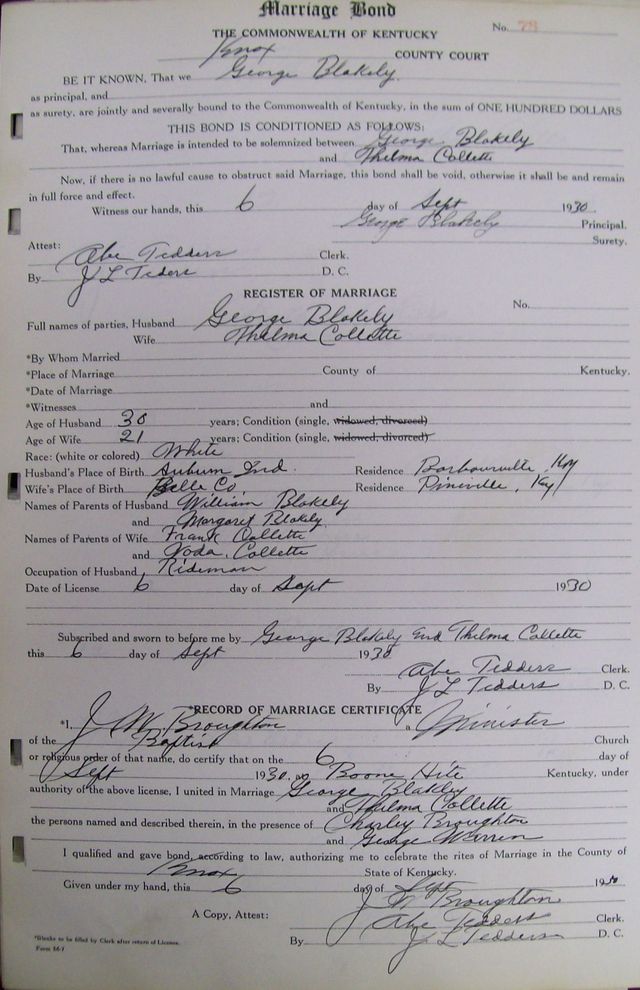 Marriage Bond
No. 78
THE COMMONWEALTH OF KENTUCKY
Knox COUNTY COURT
BE IT KNOWN, That we George Blakely
as principal, and
as surety, are jointly and severally bound to the Commonwealth of Kentucky, in the sum of ONE HUNDRED DOLLARS
THIS BOND IS CONDITIONED AS FOLLOWS:
That, whereas Marriage is intended to be solemnized between George Blakely
and Thelma Collette
Now, if there is no lawful cause to obstruct said Marriage, this bond shall be void, otherwise it shall be and remain
in full force and effect.
Witness our hands, this 6 day of Sept 1930
George Blakely Principal.
Surety.
Attest:
Abe Tedders Clerk.
By J L Teders D. C.
REGISTER OF MARRIAGE
No.
Full names of parties, Husband George Blakely
Wife Thelma Collette
*By Whom Married
*Place of Marriage County of Kentucky.
*Date of Marriage
*Witnesses and
Age of Husband 30 years; Condition (single, widowed, divorced)
Age of Wife 21 years; Condition (single, widowed, divorced)
Race: (white or colored) White
Husband's Place of Birth Auburn Ind. Residence Barbourville, Ky
Wife's Place of Birth Belle Co. Residence Pineville, Ky
Names of Parents of Husband William Blakely
and Margaret Blakely
Names of Parents of Wife Frank Collette
and Voda Collette
Occupation of Husband Rideman
Date of License 6 day of Sept 1930
Subscribed and sworn to before me by George Blakely and Thelma Collette
this 6 day of Sept 1930
Abe Tedders Clerk.
By J L Tedders D. C.
*RECORD OF MARRIAGE CERTIFICATE
*I, J. M. Broughton a Minister
of the Baptist Church
or religious order of that name, do certify that on the 6 day of
Sept 1930, at Boone Hite Kentucky, under
authority of the above license, I united in Marriage George Blakeley
and Thelma Collette
the persons named and described therein, in the presence of Charley Broughton
and George Warren
I qualified and gave bond, according to law, authorizing me to celebrate the rites of Marriage in the County of
Knox State of Kentucky.
Given under my hand, this 6 day of Sept 1930
J M Broughton
A Copy, Attest: Abe Tedders Clerk.
By J L Tedders D. C.
*Blanks to be filled by Clerk after return of License.
Form 86-1